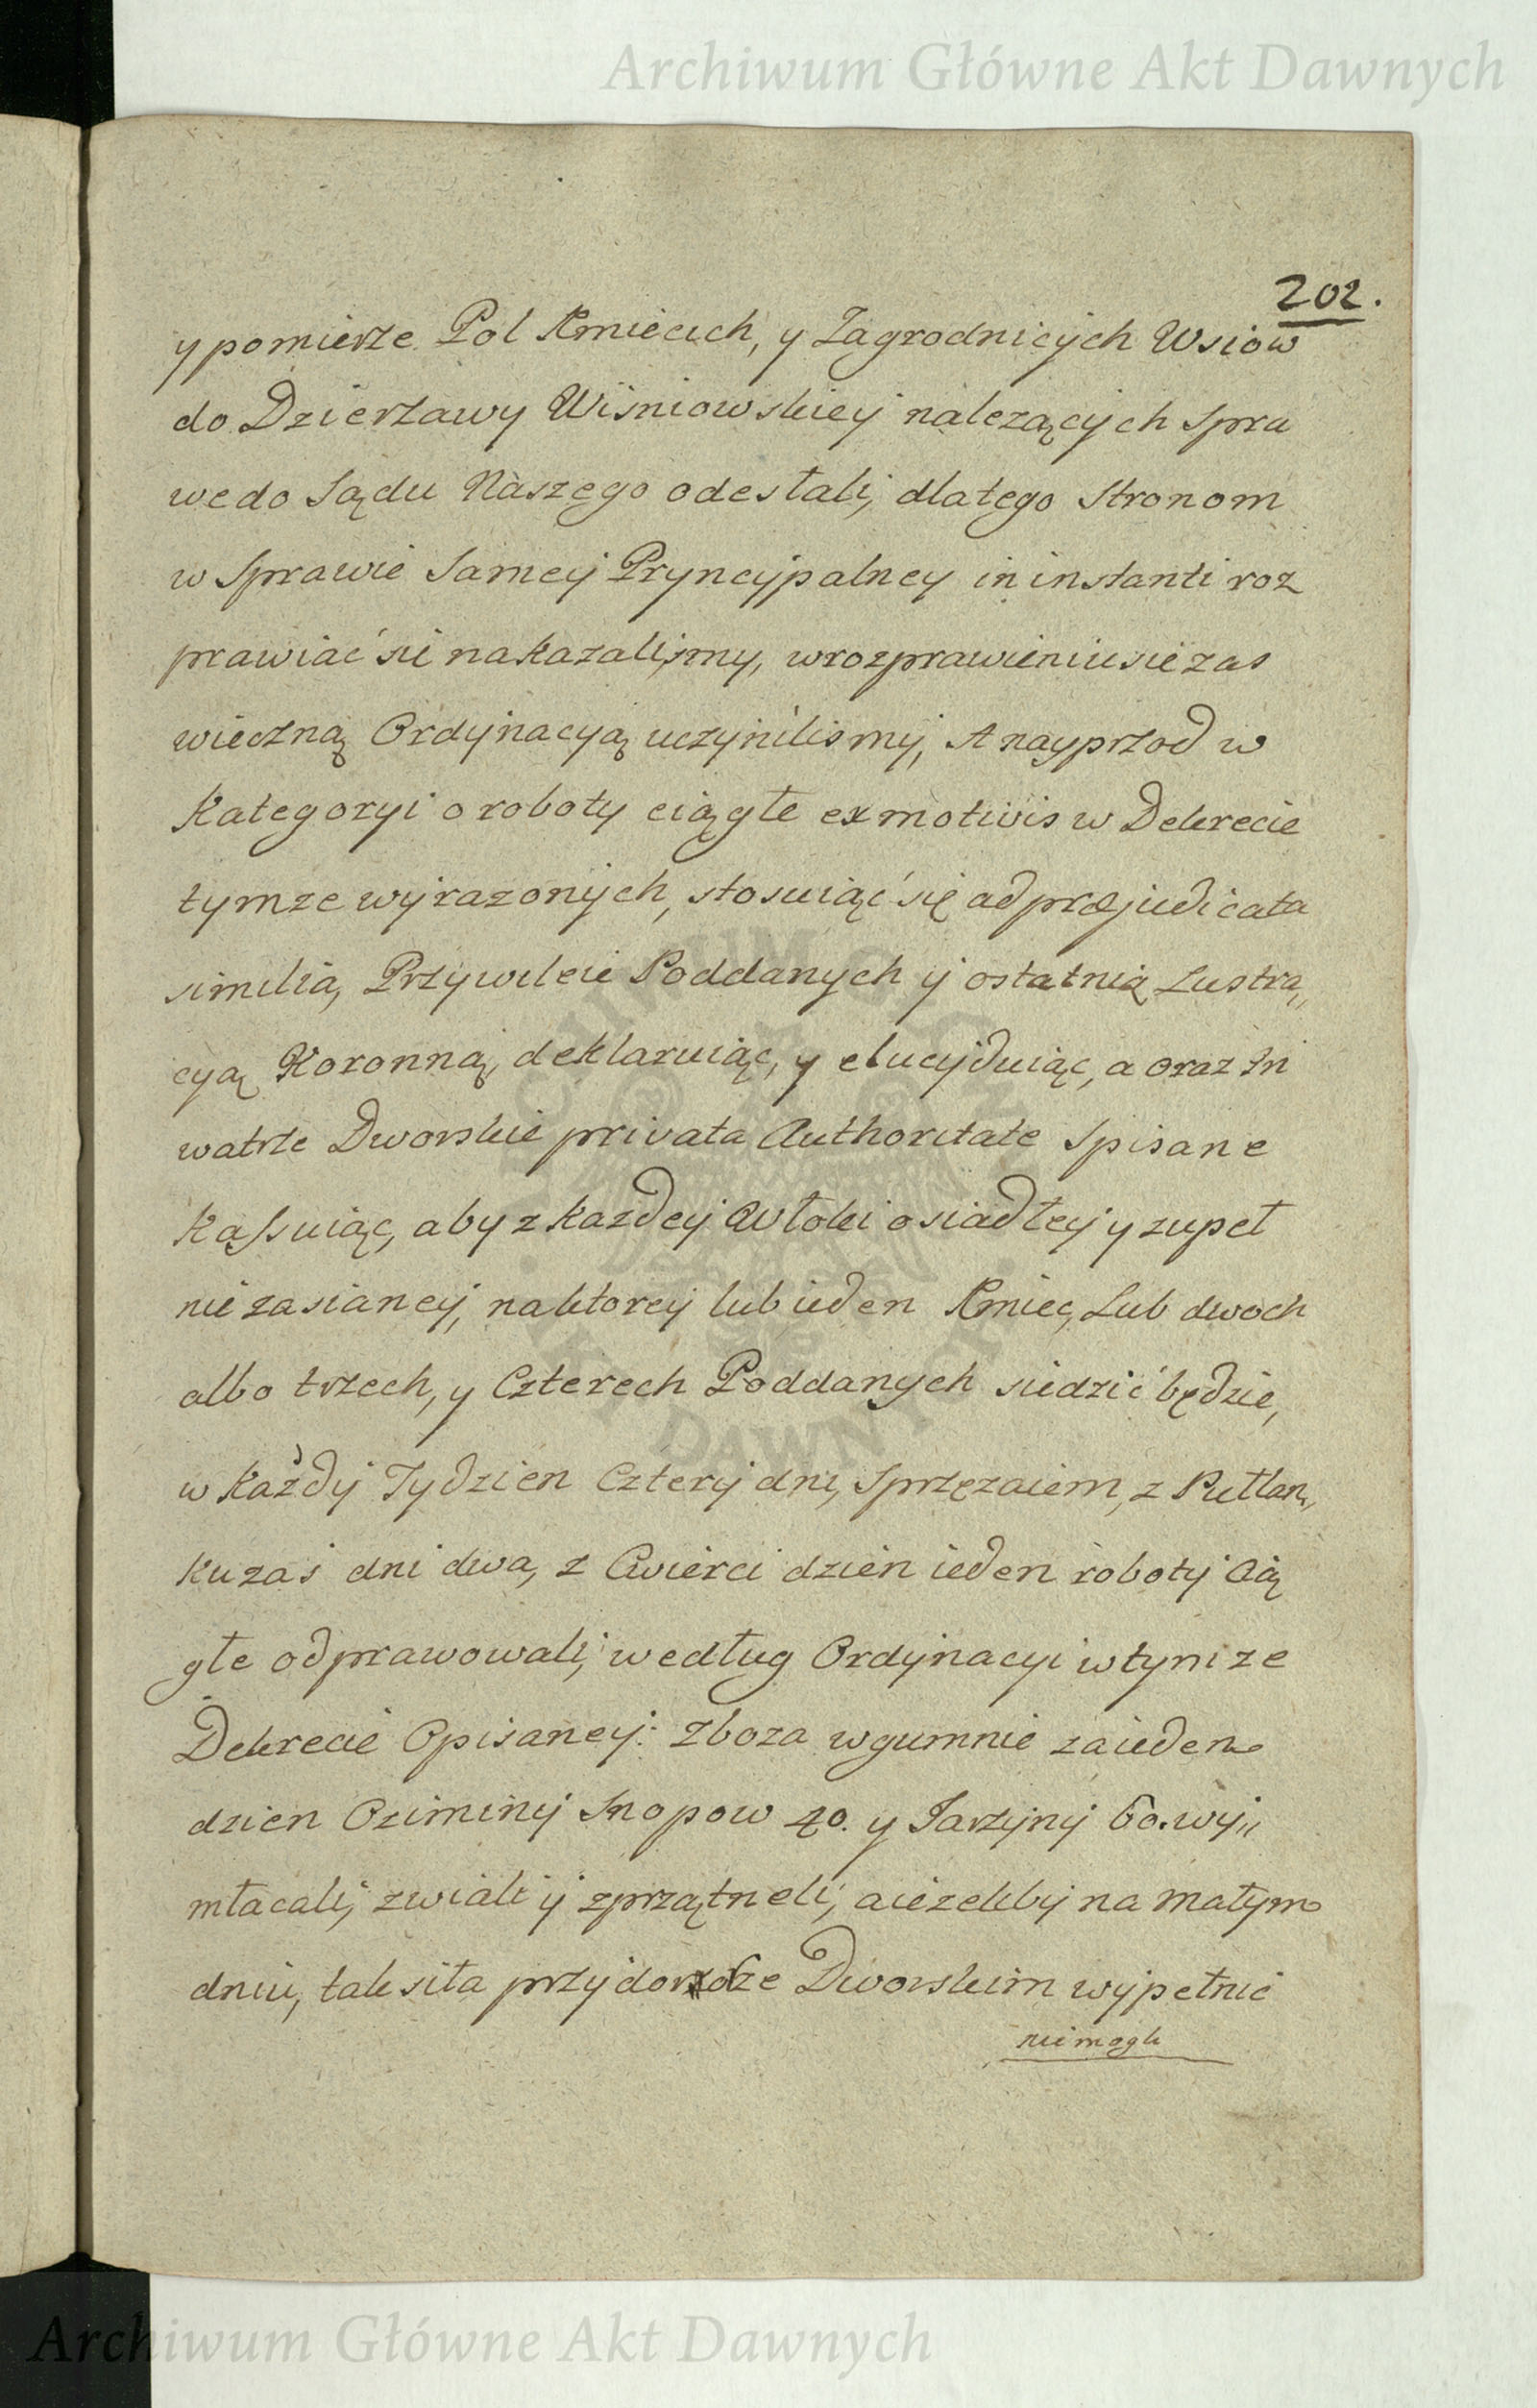 Archiwum Główne Akt Dawnych
202.
y pomierze Pol Kmiecich, y Zagrodniczych Wsiow
do Dzierzawy Wiśniowskiey nalezących Spra
we do Sądu Naszego odesłali, dlatego Stronom
w Sprawie Samey Pryncypalney in instanti roz
prawiać sie nakazalismy, w rozprawieniu sie zas
wieczną Ordynacyą uczynilismy, A nayprzod w
Kategoryi o roboty ciągłe ex motivis w Dekrecie
tymze wyrazonych, stosuiąc się ad præjudicata
similia, Przywileie Poddanych y ostatnią Lustra,,
cyą Koronną, deklaruiąc, y elucyduiąc, a oraz In
watrze Dworskie privata Authoritate Spisane
Kassuiąc, aby z kazdey Włoki osiadłey y zupeł
nie zasianey, na ktorey lub ieden Kmiec, Lub dwoch
albo trzech, y Czterech Poddanych siedzić będzie,
w Każdy Tydzien Cztery dni, Sprzęzaiem, z Pułłan,,
ku zaś dni dwa, z Cwierci dzien ieden roboty Cią
głe odprawowali, według Ordynacyi w tymze
Dekrecie Opisaney: Zboza w gumnie za ieden
dzien Oziminy Snopow 40. y Jarzyny 60. wy,,
młacali, zwiali y zprzątneli, a iezeliby na małym
dniu, tak siła przy dozorze Dworskim wypełnić
nie mogli
ARCHIWUM GŁÓWNE AKT DAWNYCH
Archiwum Główne Akt Dawnych